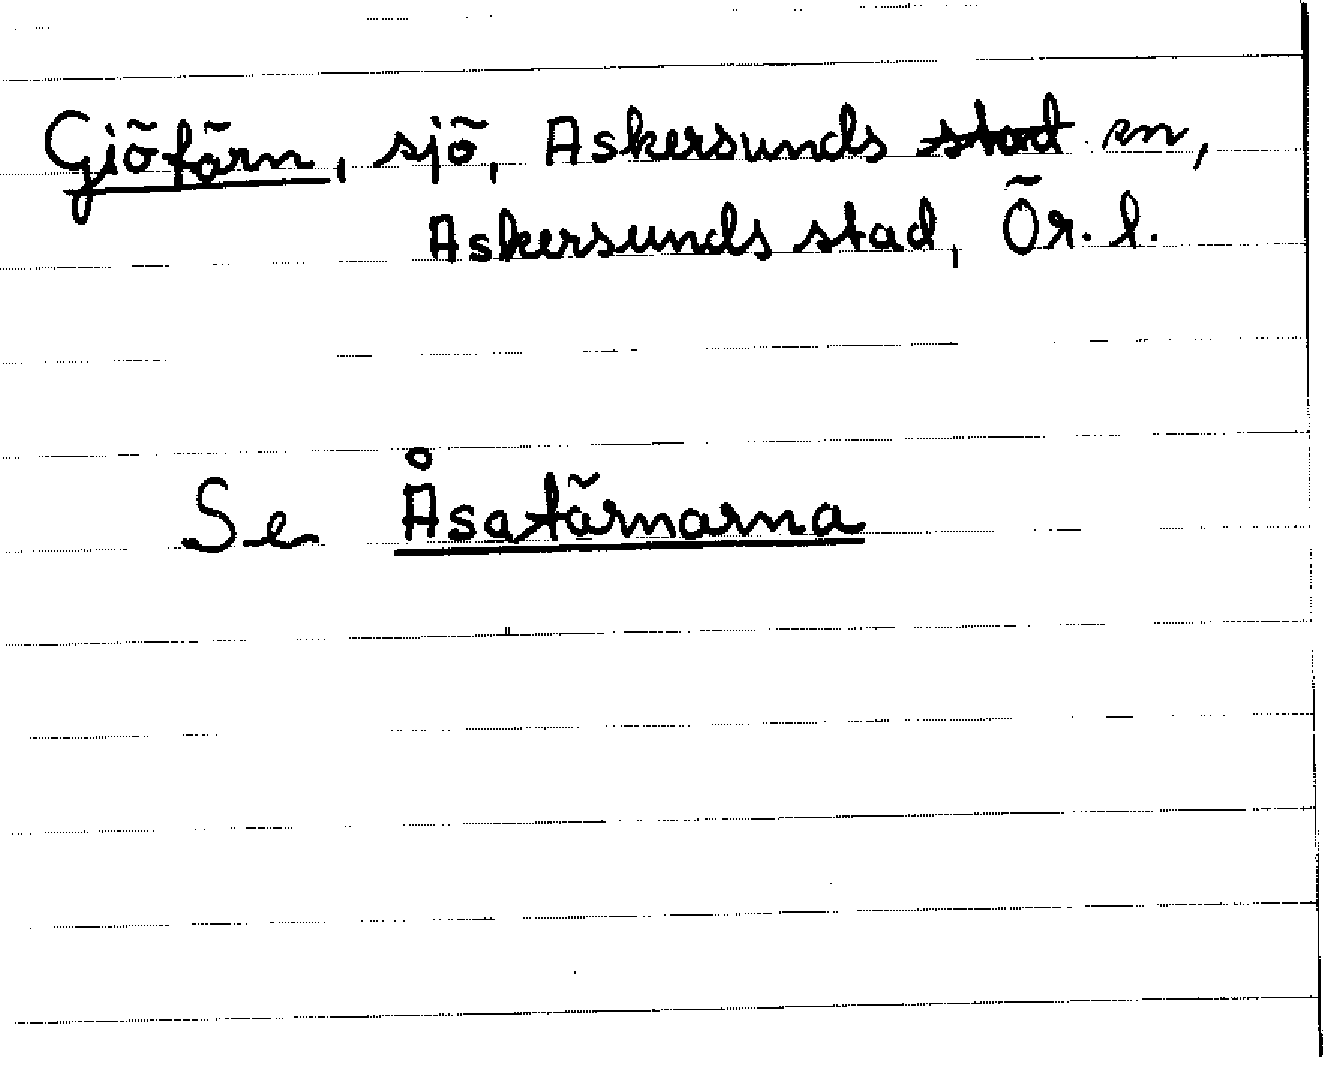 Giöfärn, sjö, Askersunds ~~stad~~ sn,
Askersunds stad, Ör. l.
Se Åsatärnarna